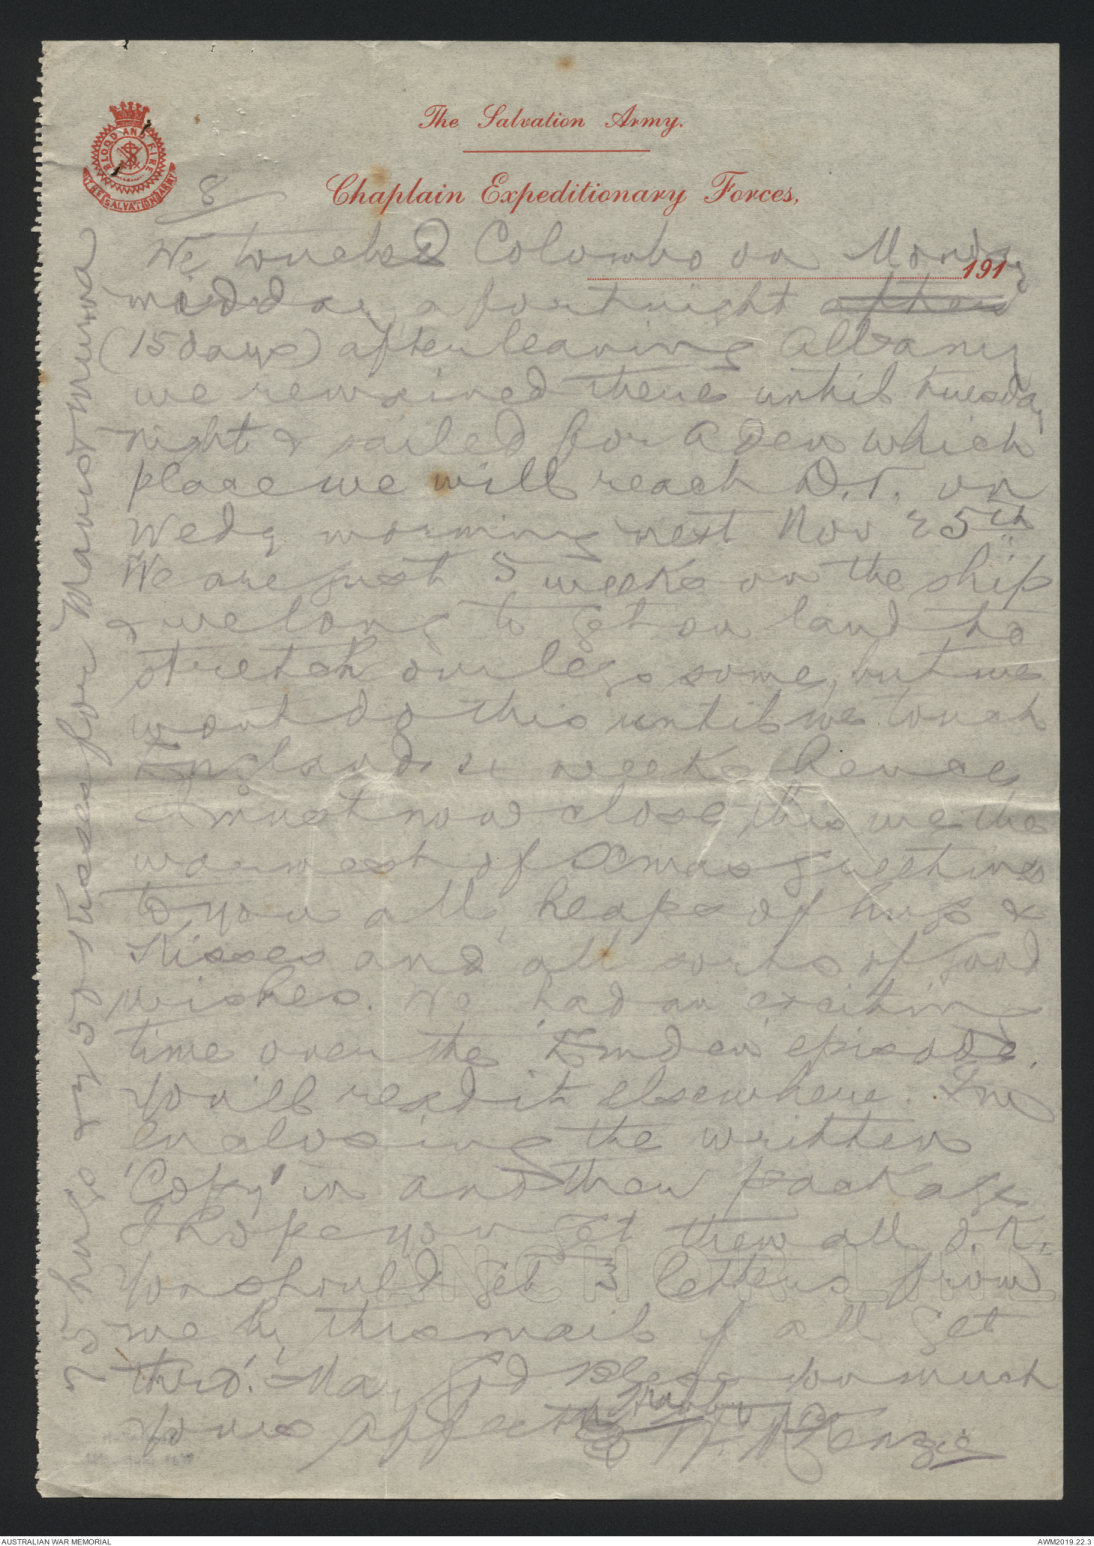 The Salvation Army.
Chaplain Expeditionary Forces,
BLOOD AND FIRE
THE SALVATION ARMY
8
191
We touched Colombo on Monday
midday a fortnight after
(15 days) after leaving Albany
we remained there until Tuesday
night & sailed for Aden which
place we will reach D.V. on
Wedy morning next Nov 25th
We are just 5 weeks on the ship
& we long to get on land to
stretch our legs some, but we
wont do this until we touch
England 4 weeks hence
I must now close this we the
warmest of Xmas greetings
to you all, heaps of hugs &
Kisses and all sorts of good
wishes. We had an exciting
time over the "Emden" episode.
You'll read it elsewhere. I'm
enclosing the written
'Copy' in another package
I hope you get them all O.K.
You should get 3 letters from
me by this mail if all get
thro'. May God bless you much
Yours affect. Hubby
W. McKenzie
70 hugs & 750 Kisses for Mavis & Mumma
ANCHOR LINE
AUSTRALIAN WAR MEMORIAL
AWM2019.22.3